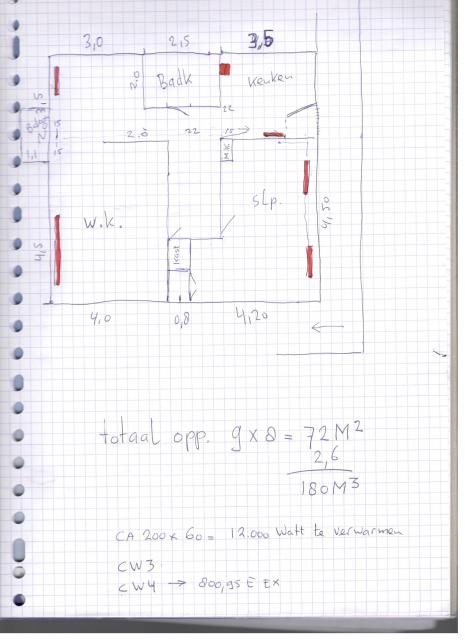 3,0 2,5 3,5
2,0 Badk keuken
3,5
22
2,8 22 15
slp.
w.k.
4,50
kast
4,5
4,0 0,8 4,20
totaal opp. 9 x 8 = 72 M²
2,6
180 M³
CA 200 x 60 = 12.000 Watt te verwarmen
CW3
CW4 → 800,95 E EX